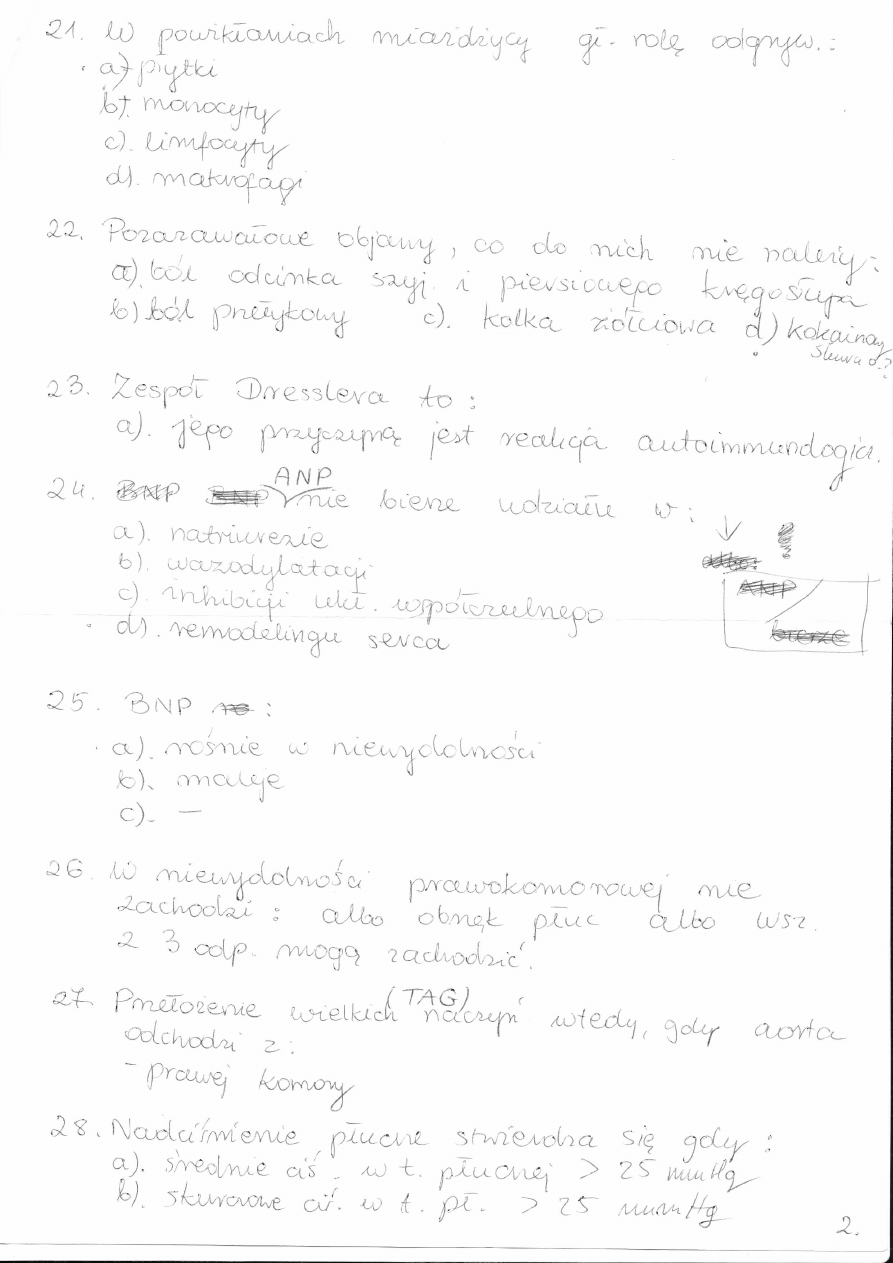 21. W powikłaniach miażdżycy gł. rolę odgryw.:
a) płytki
b). monocyty
c). limfocyty
d). makrofagi
22. Pozazawałowe objawy, co do nich nie należy:
a). ból odcinka szyj. i piersiowego kręgosłupa
b) ból przełykowy c). kolka żółciowa d) kokainay
skurw o.?
23. Zespół Dresslera to:
a). jego przyczyną jest reakcja autoimmunologicz.
ANP
24. BNP BNP nie bierze udziału w:
a). natriurezie
b). wazodylatacji
c). inhibicji ukł. współczulnego
d). remodelingu serca
albo:
ANP
bierze
25. BNP :
a). rośnie w niewydolności
b). maleje
c). –
26. W niewydolności prawokomorowej nie
zachodzi: albo obrzęk płuc albo wsz.
z 3 odp. mogą zachodzić.
27. Przełożenie wielkich (TAG) naczyń wtedy, gdy aorta
odchodzi z:
- prawej komory
28. Nadciśnienie płucne stwierdza się gdy:
a). średnie ciś. w t. płucnej > 25 mmHg
b). skurczowe ciś. w t. pł. > 25 mmHg
2.